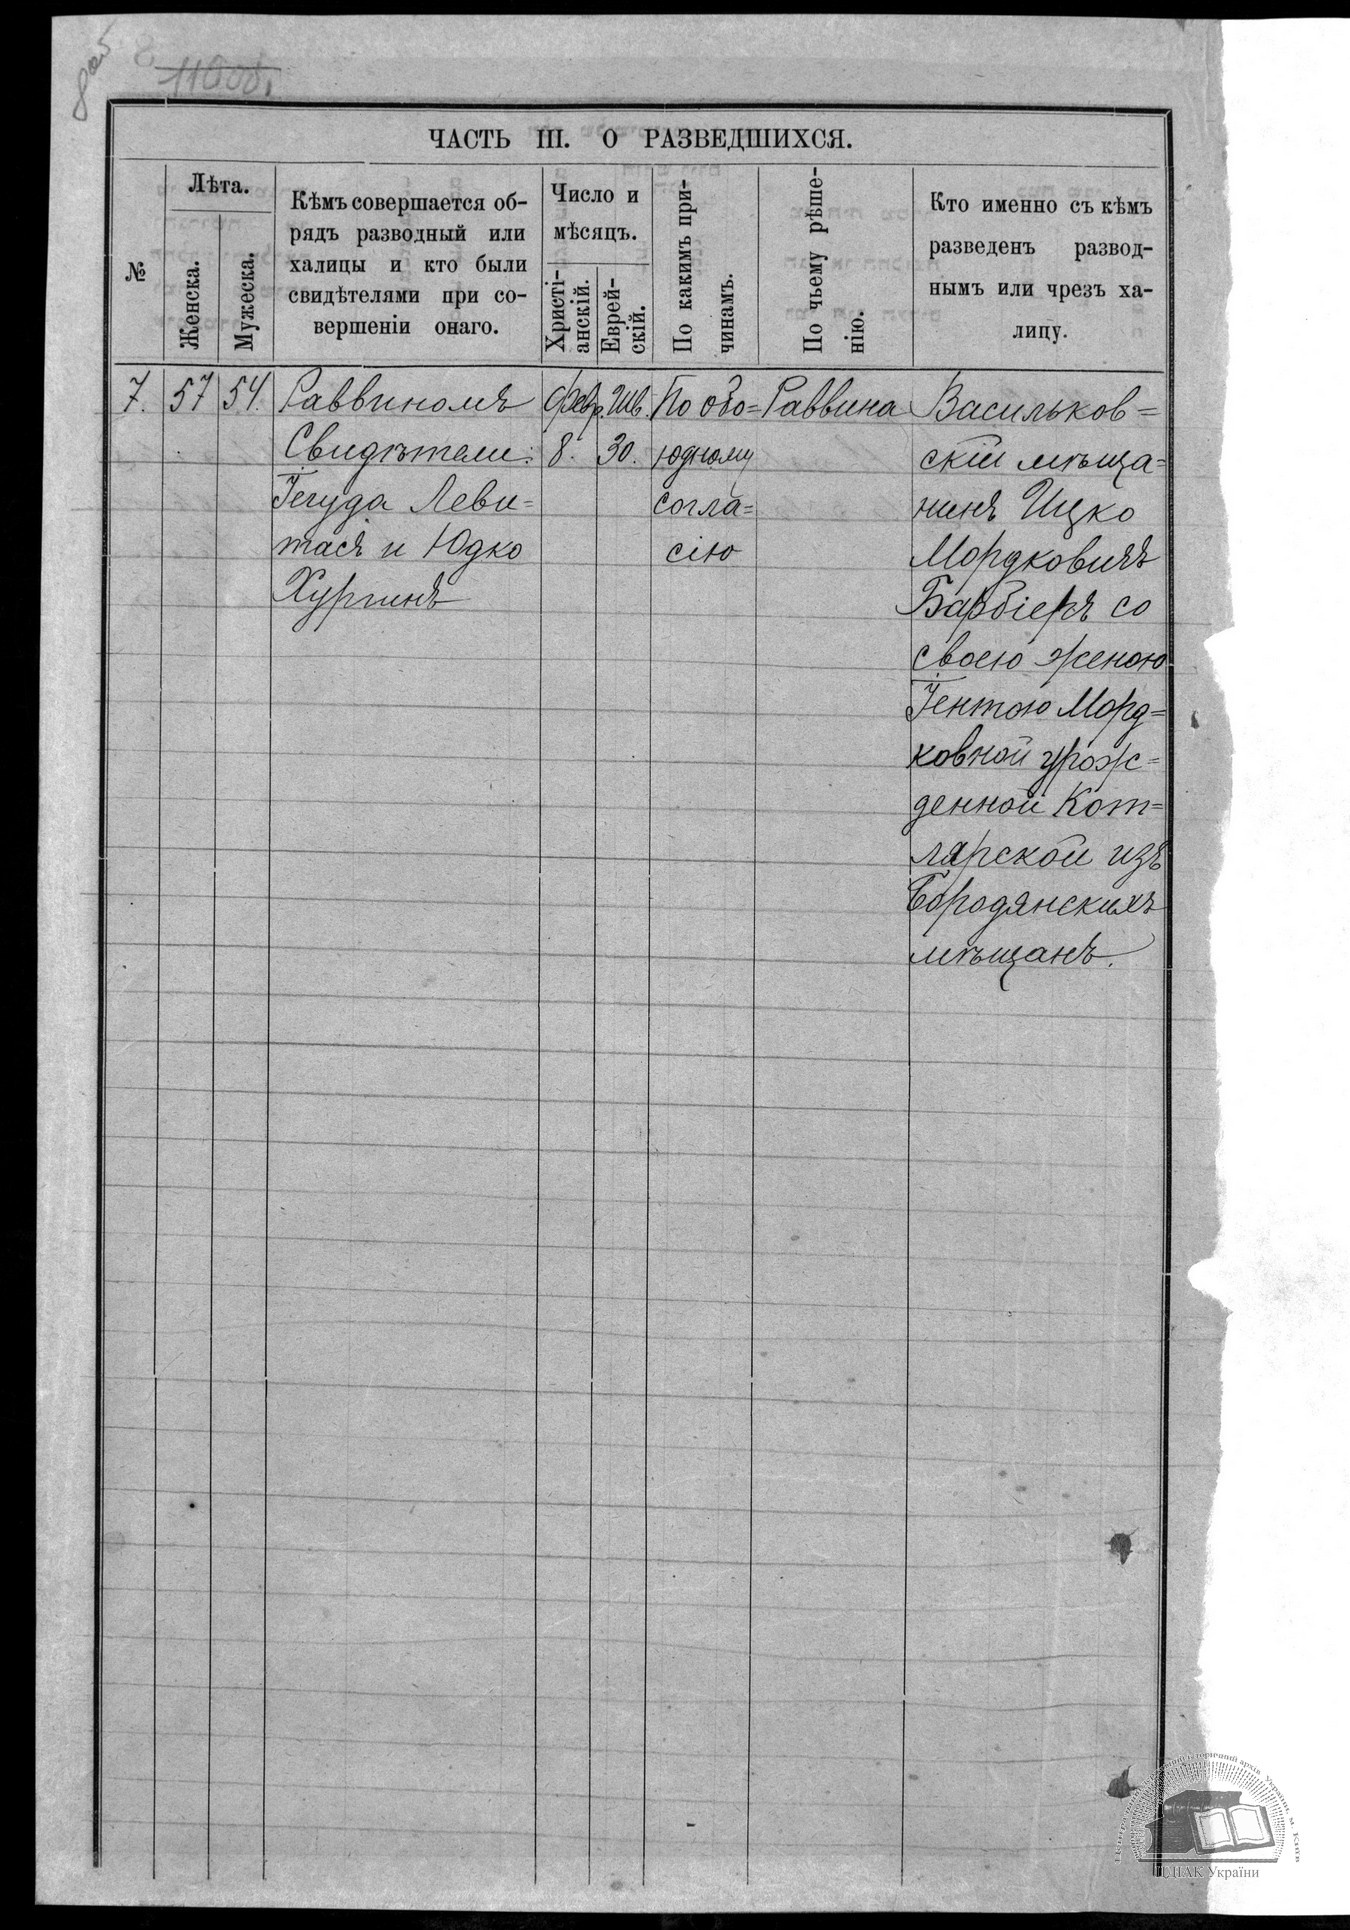 8 об
110об.
ЧАСТЬ III. О РАЗВЕДШИХСЯ.
№
Лѣта.
Женска.
Мужеска.
Кѣмъ совершается об-
рядъ разводный или
халицы и кто были
свидѣтелями при со-
вершеніи онаго.
Число и
мѣсяцъ.
Христі-
анскій.
Еврей-
скій.
По какимъ при-
чинамъ.
По чьему рѣше-
нію.
Кто именно съ кѣмъ
разведенъ развод-
нымъ или чрезъ ха-
лицу.
7.
57
54.
Раввиномъ
Свидѣтели:
Іегуда Леви=
тасъ и Юдко
Хургинъ
Февр.
8.
Шв.
30.
По обо=
юдному
согла=
сію
Раввина
Васильков=
скій мѣща=
нинъ Ицко
Мордковичъ
Барбіеръ со
своею женою
Іентою Морд=
ковной урож=
денной Кот=
лярской изъ
Бородянскихъ
мѣщанъ.
ЦДІАК України